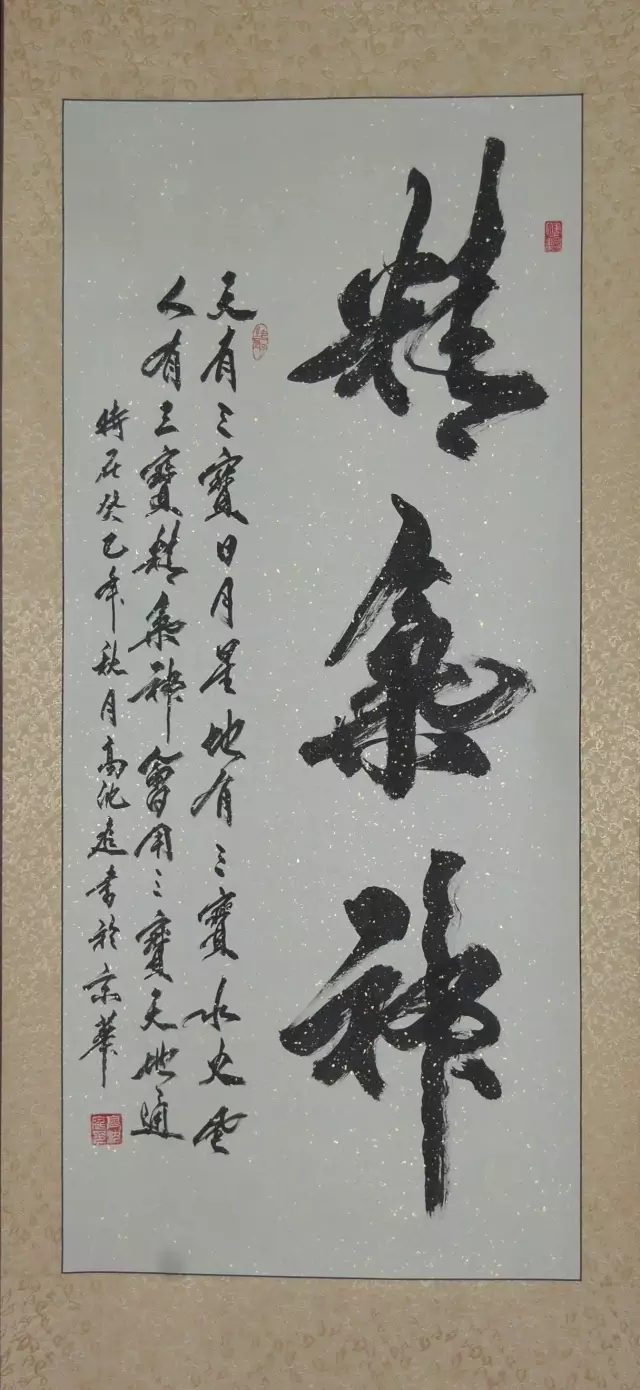 精氣神
天有三寶日月星地有三寶水火雲
人有三寶精氣神會用三寶天地通
時在癸巳年秋月高池遠書於京華